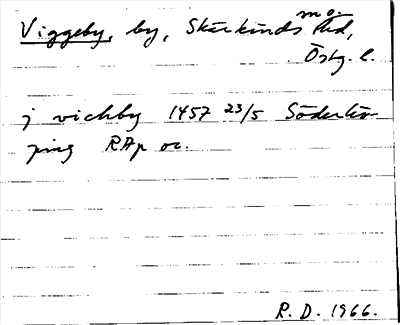 Viggeby, by, Skärkinds sn o. hd,
Östg. l.
j vichby 1457 23/5 Söderkö-
ping RAp or.
R. D. 1966.